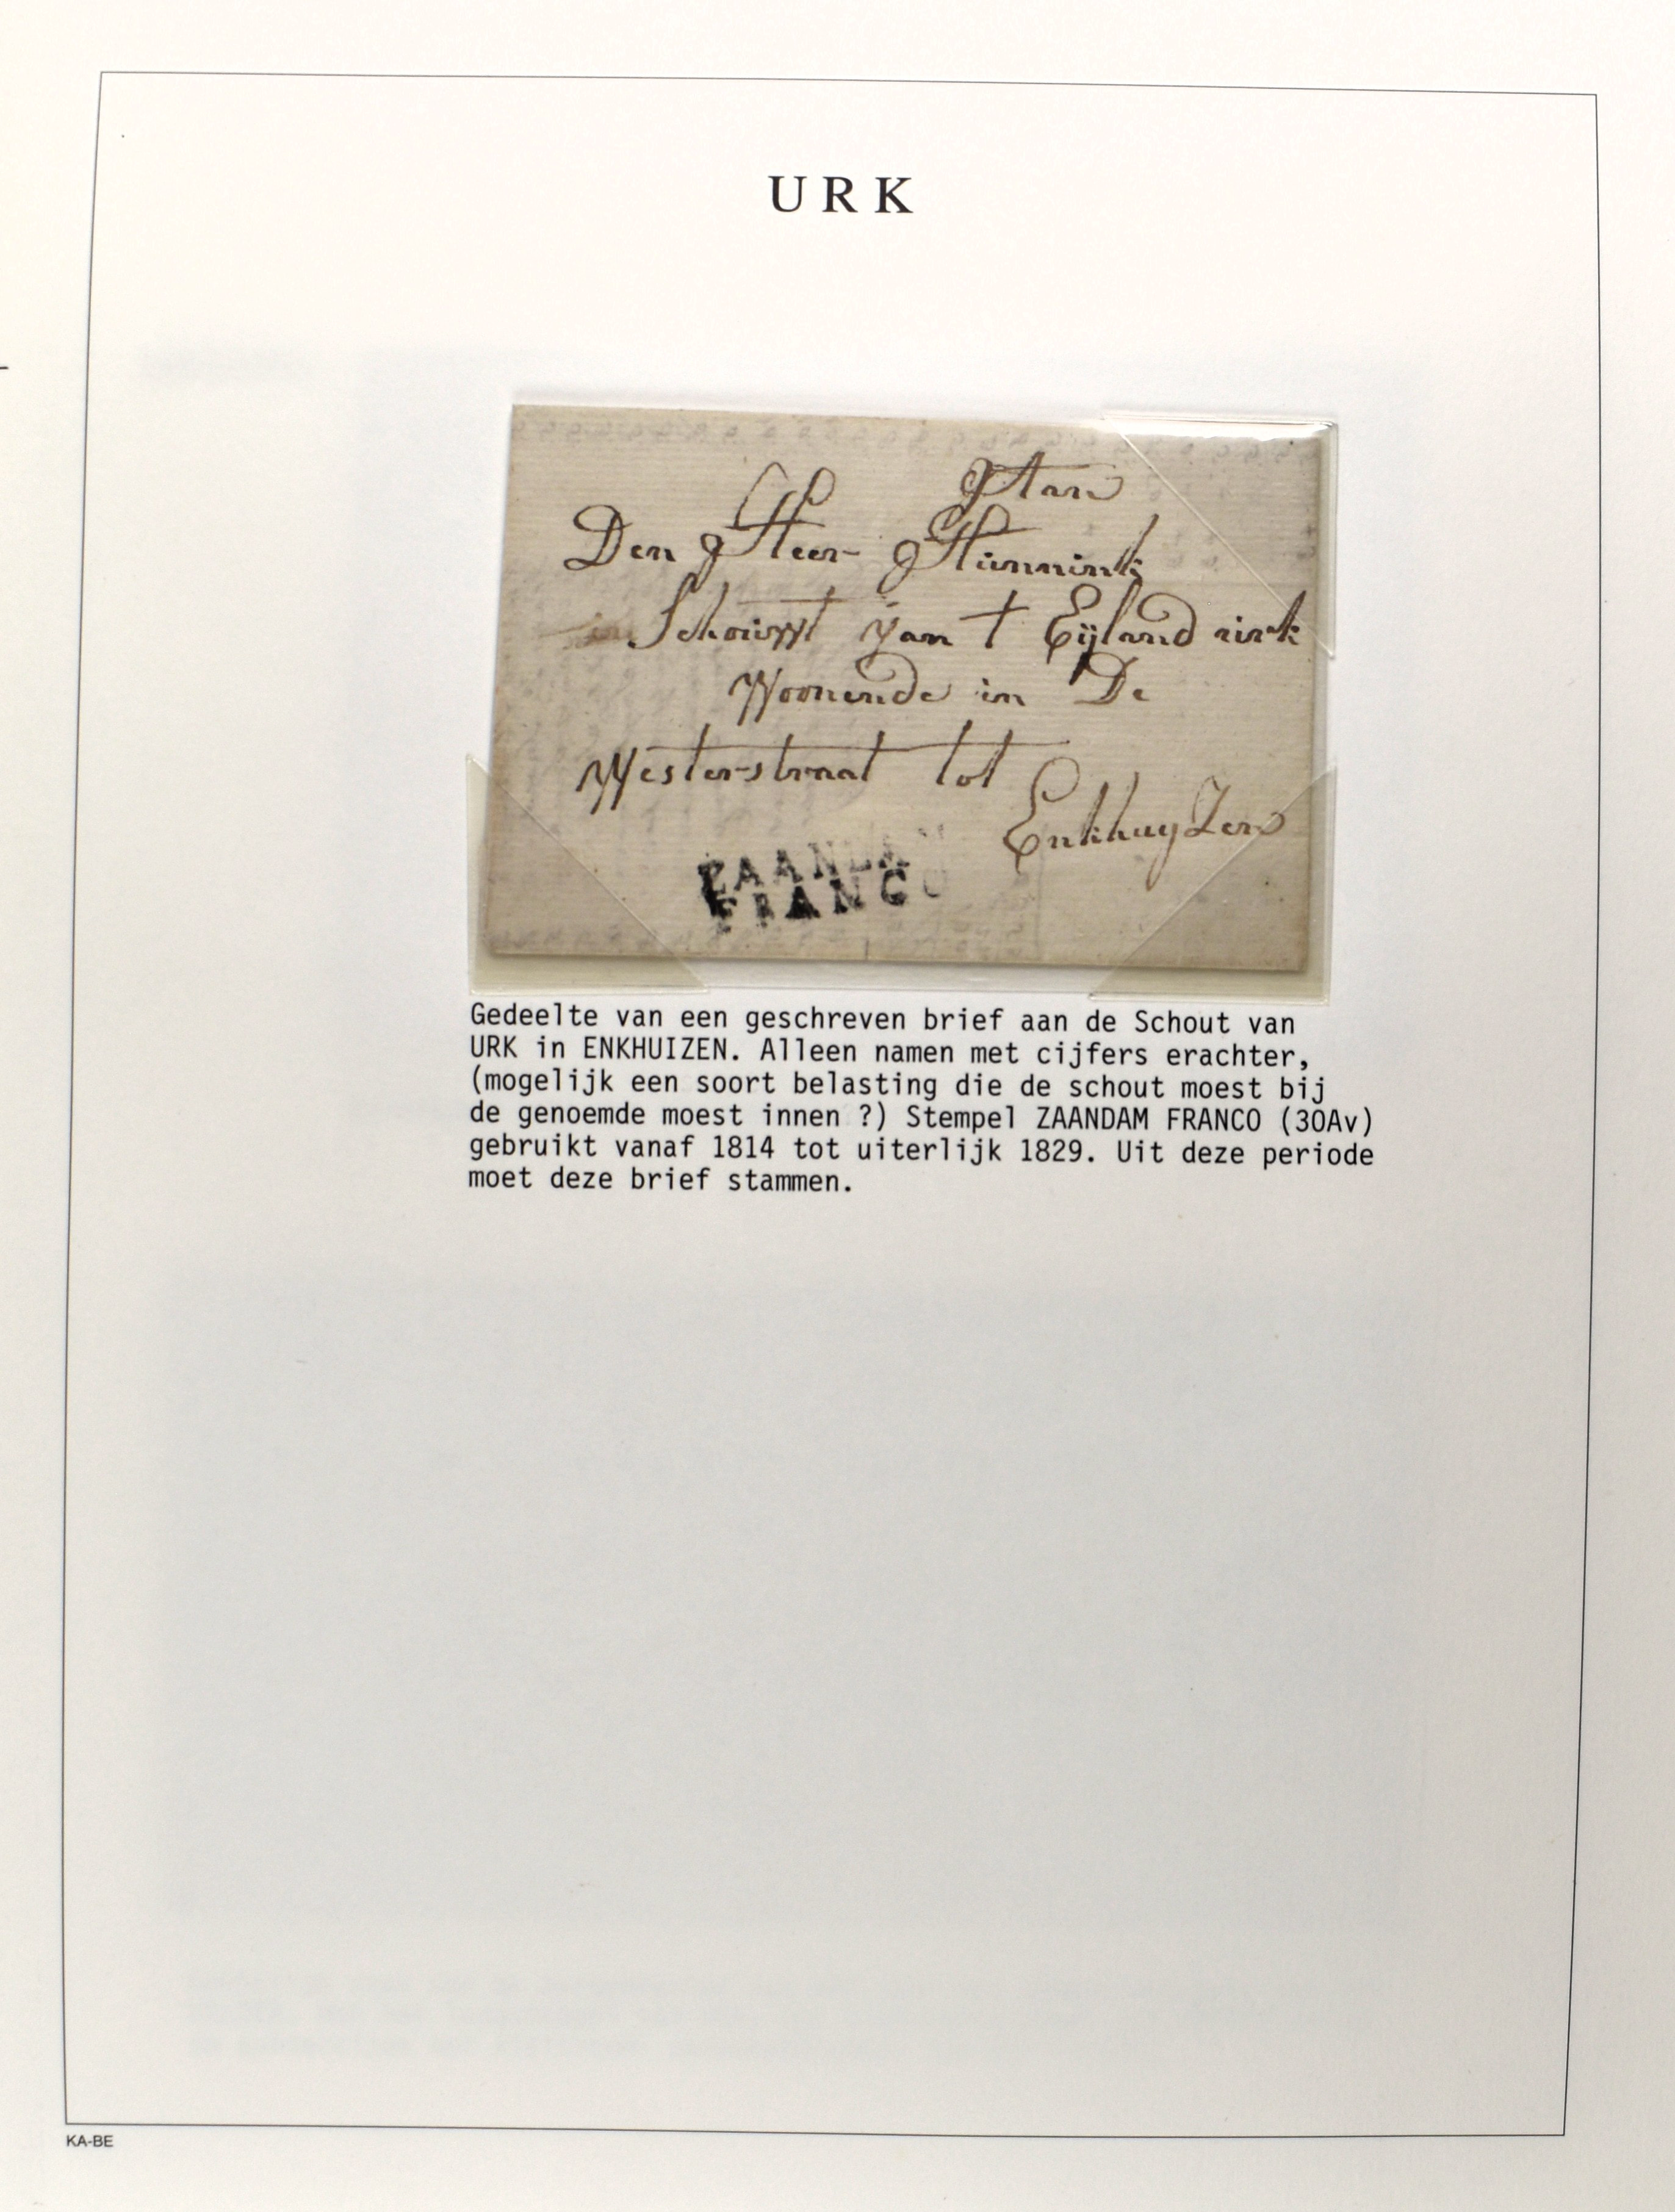 URK
Aan
Den Heer Hünnink
Schouwt van t Eijland urk
Woonende in De
Westerstraat tot
EnkhuyZen
ZAANDA
FRANCO
Gedeelte van een geschreven brief aan de Schout van
URK in ENKHUIZEN. Alleen namen met cijfers erachter,
(mogelijk een soort belasting die de schout moest bij
de genoemde moest innen ?) Stempel ZAANDAM FRANCO (30Av)
gebruikt vanaf 1814 tot uiterlijk 1829. Uit deze periode
moet deze brief stammen.
KA-BE